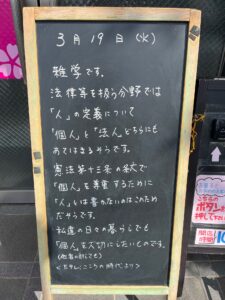 3月19日(火)
雑学です。
法律等を扱う分野では
「人」の定義について
「個人」と「法人」どちらにも
あてはまるそうです。
憲法第十三条の条文で
「個人」を尊重するために
「人」とは書かないのはこのため
だそうです。
私達の日々の暮らしでも
「個人」を大切にしたいものです。
(他者の形にも)
こちらの
ボタン
押して下さい